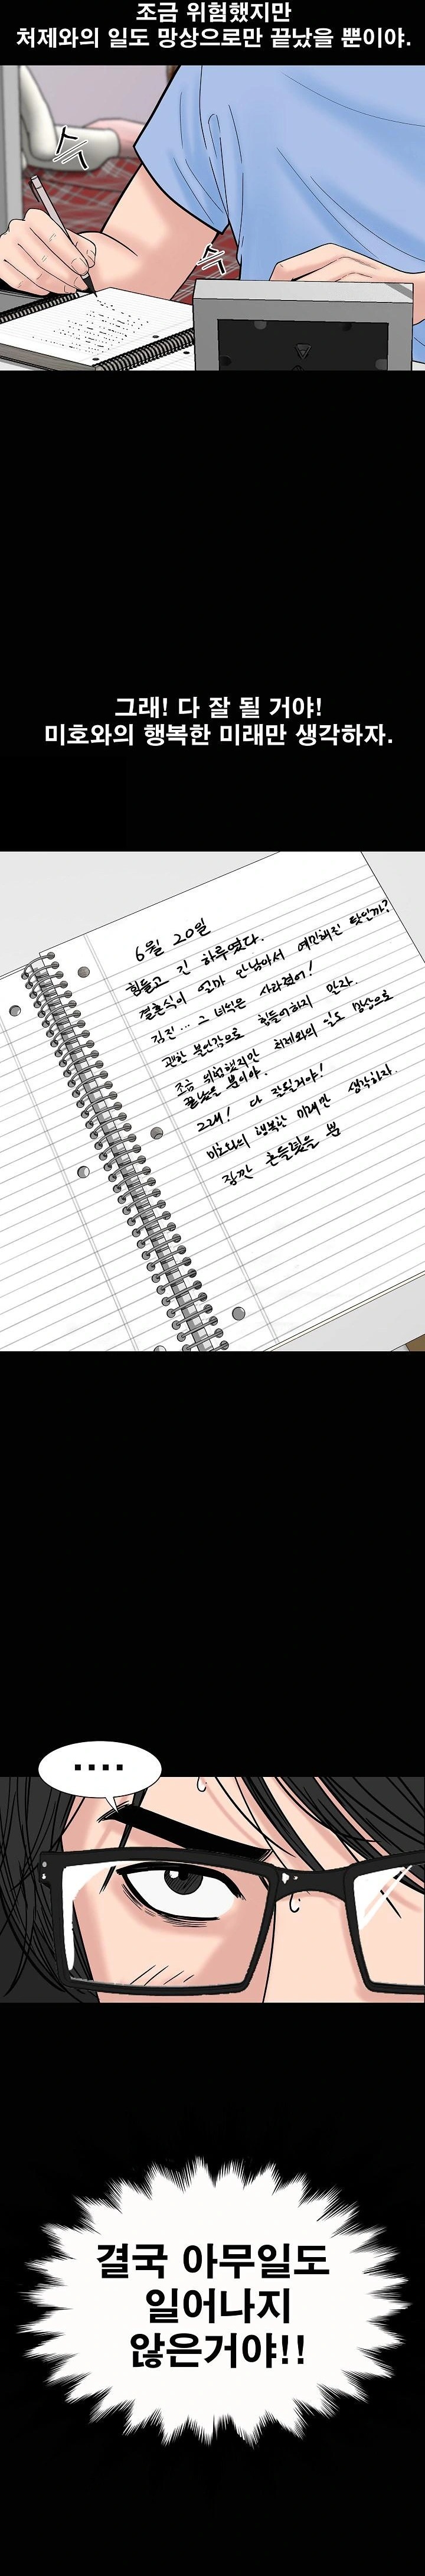 조금 위험했지만
처제와의 일도 망상으로만 끝났을 뿐이야.
스윽
스윽
그래! 다 잘 될 거야!
미호와의 행복한 미래만 생각하자.
6월 20일
힘들고 긴 하루였다.
결혼식이 얼마 안남아서 예민해진 탓인가?
김진... 그 녀석은 사라졌어!
괜한 불안감으로 힘들어하지 말자.
조금 위험했지만 처제와의 일도 망상으로
끝났을 뿐이야.
그래! 다 잘될거야!
미호와의 행복한 미래만 생각하자.
잠깐 흔들렸을 뿐
....
결국 아무일도
일어나지
않은거야!!